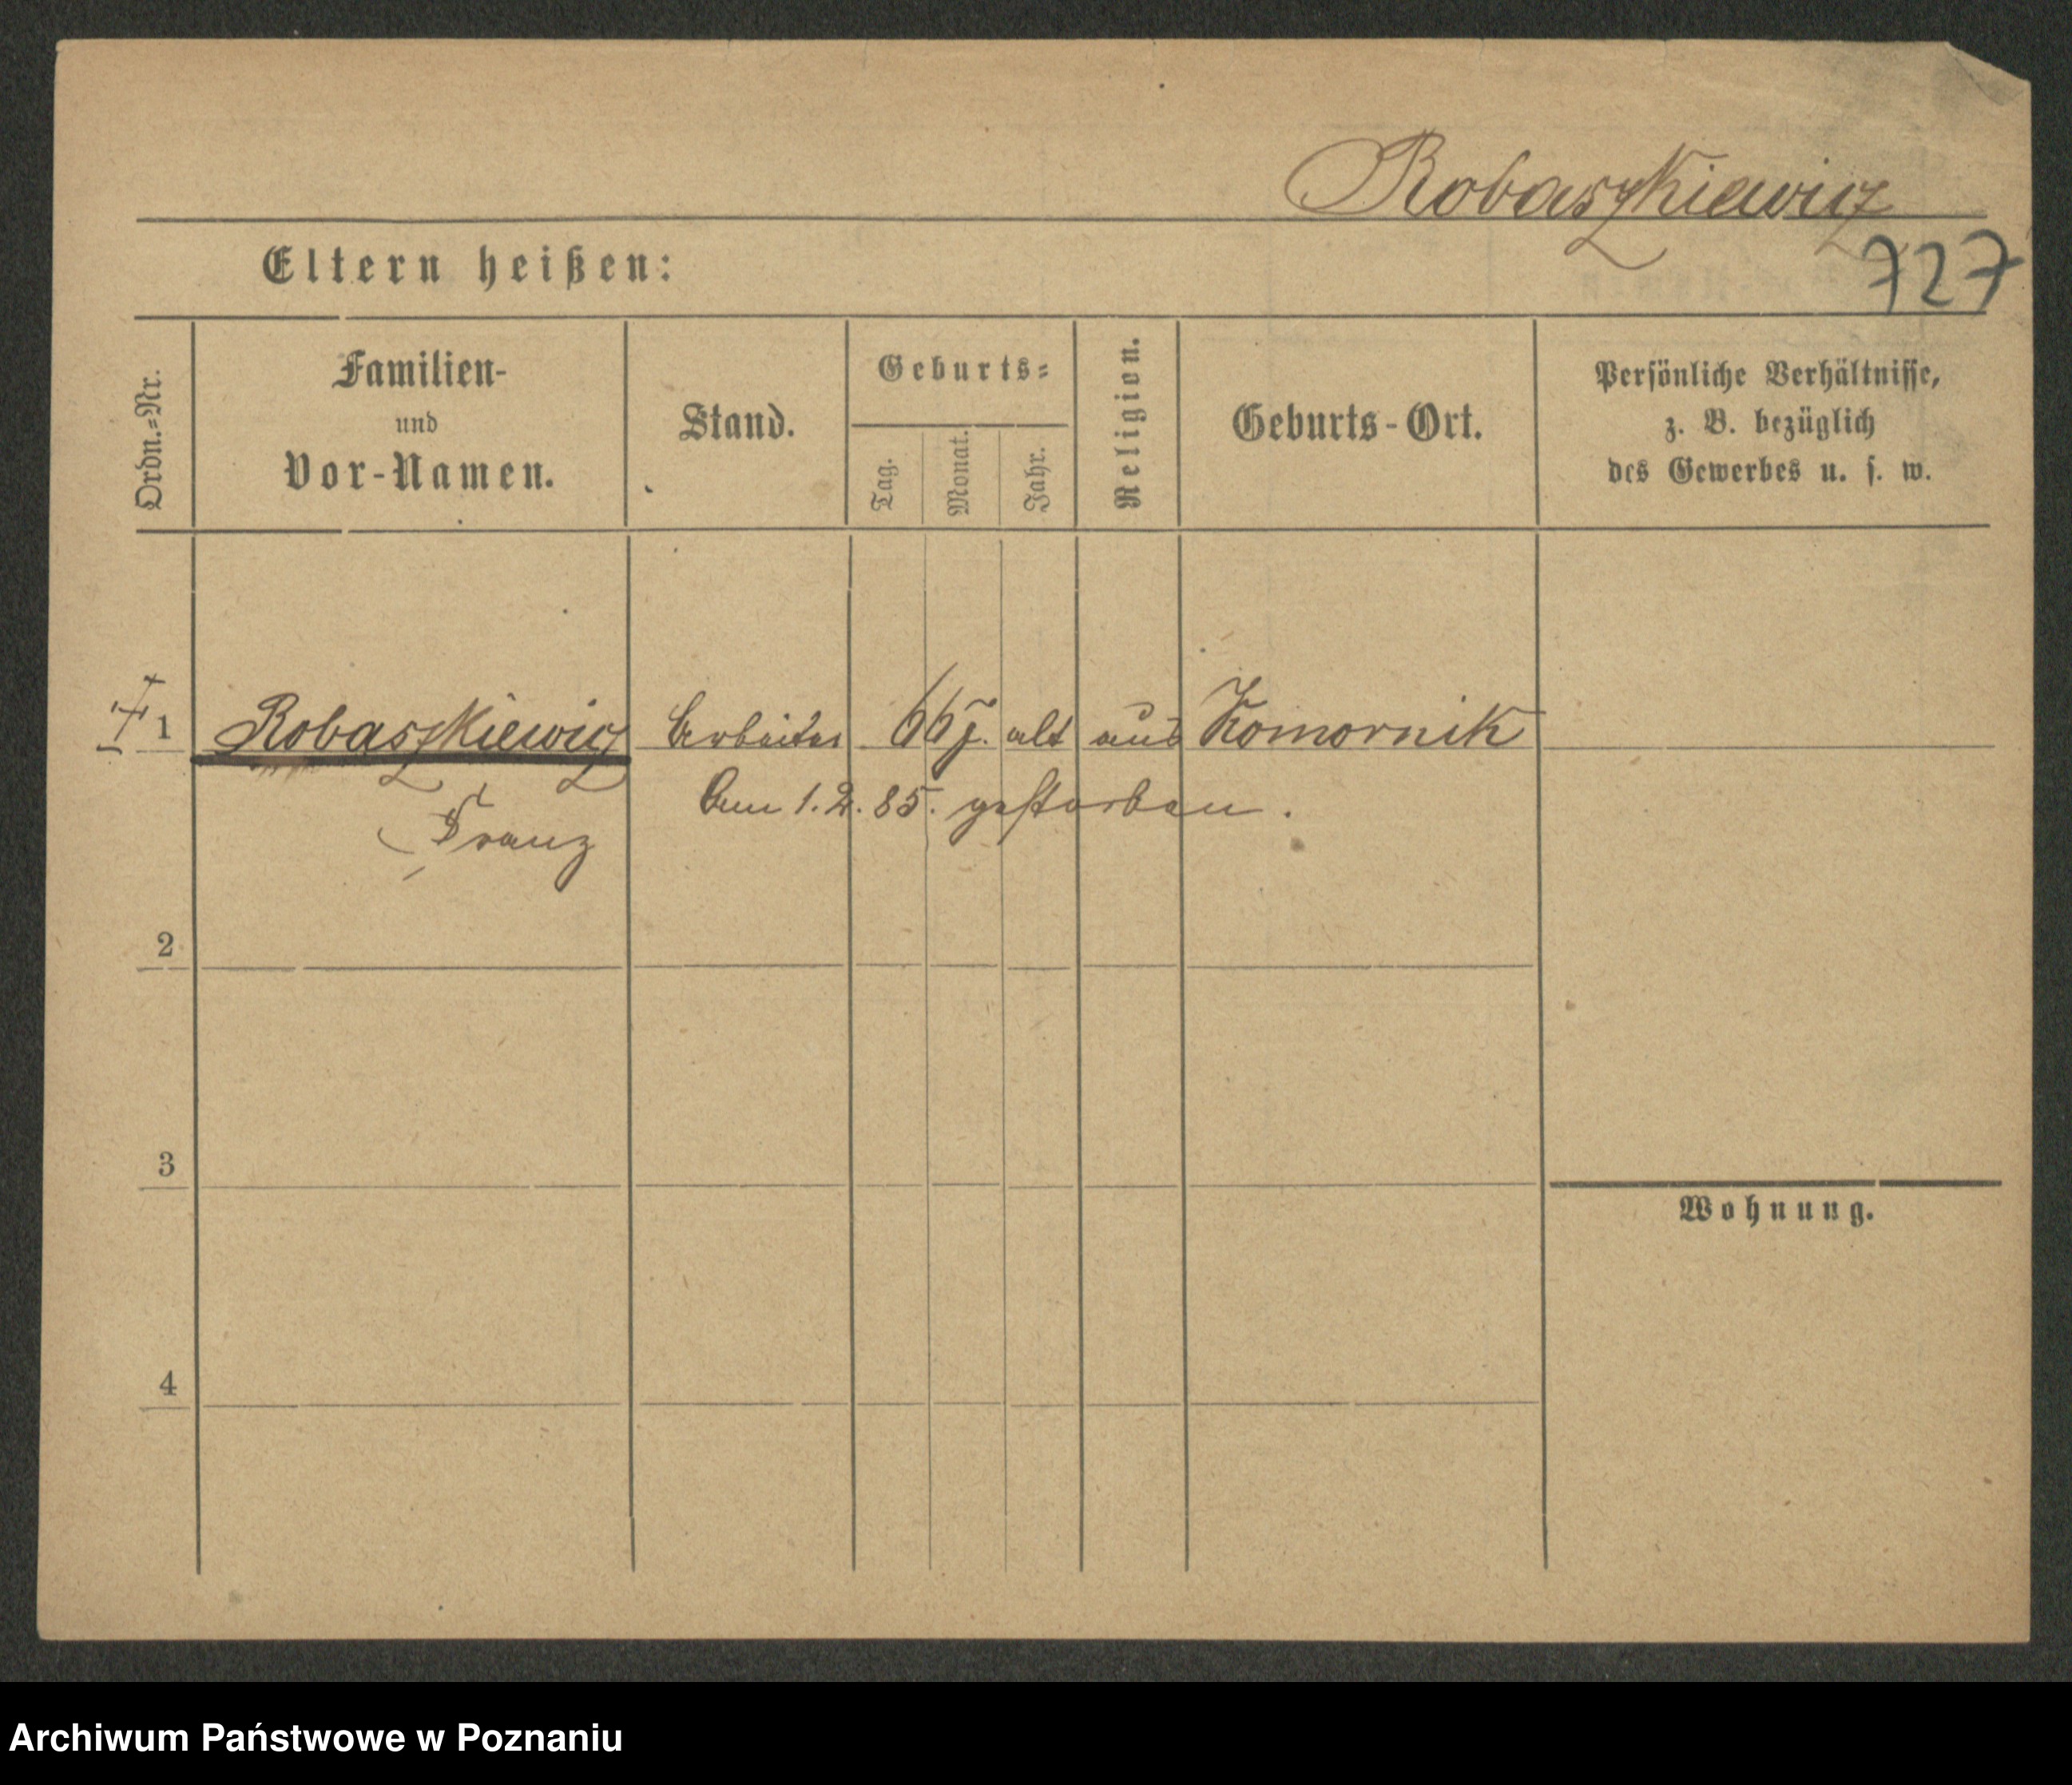 Robaszkiewicz
727
Eltern heißen:
Ordn.=Nr.
Familien-
und
Vor-Namen.
Stand.
Geburts=
Tag.
Monat.
Jahr.
Religion.
Geburts-Ort.
Persönliche Verhältnisse,
z. B. bezüglich
des Gewerbes u. s. w.
1 Robaszkiewicz Arbeiter 66 J. alt aus Komornik
Am 1.2.85. gestorben.
Franz
2
3
Wohnung.
4
Archiwum Państwowe w Poznaniu